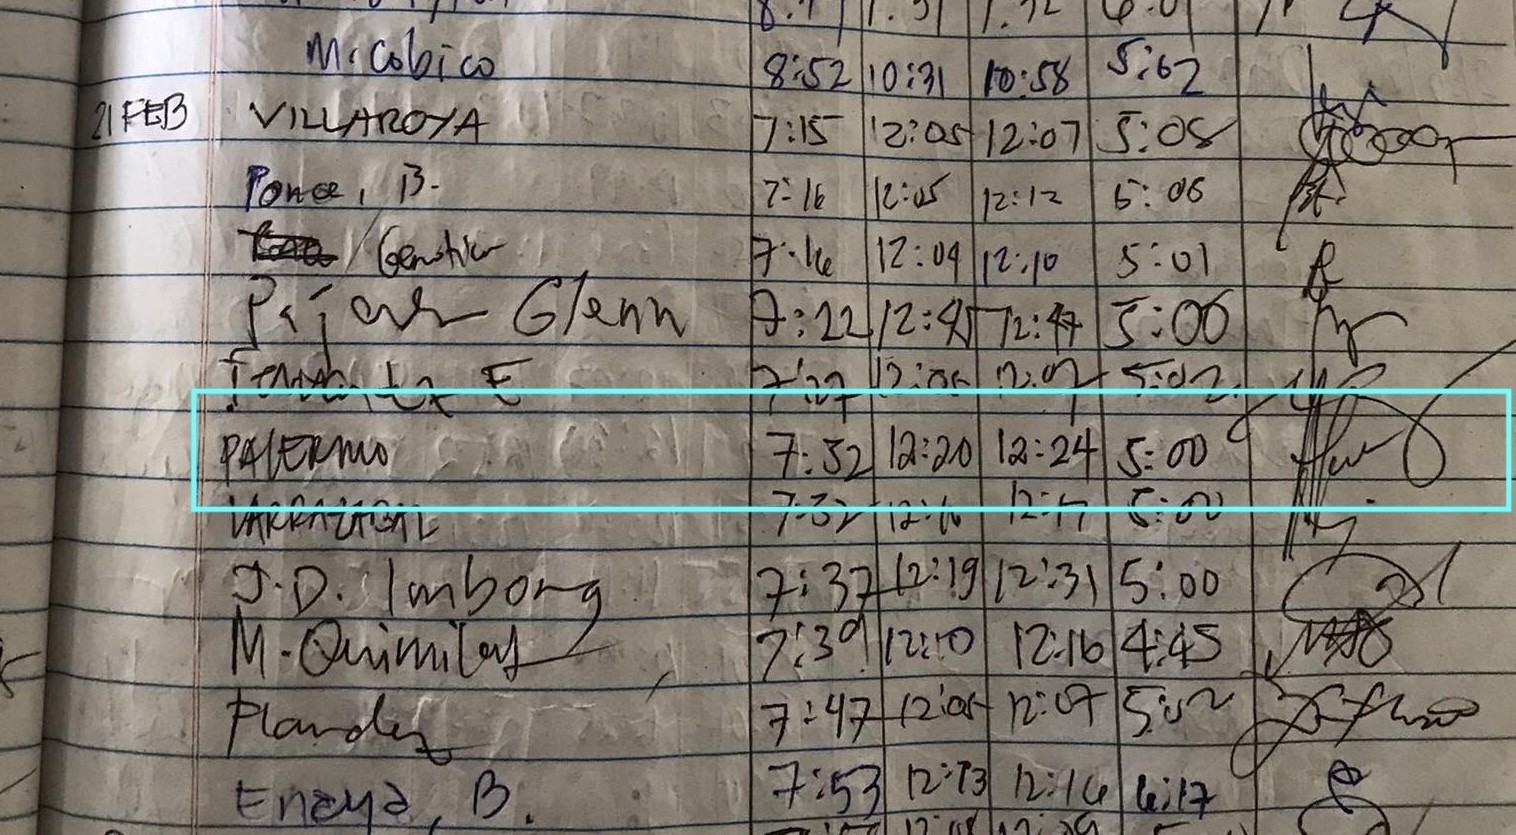 M. Cobico 8:52 10:31 10:58 5:62
21 FEB VILLAROYA 7:15 12:05 12:07 5:05
Ponce, B. 7:16 12:05 12:12 5:06
7:16 12:09 12:10 5:01
Glenn 7:22 12:45 12:47 5:00
E 7:27 12:05 12:07 5:02
PALERMO 7:32 12:20 12:24 5:00
LARRAZABAL 7:32 12:16 12:17 5:00
J.D. Imborg 7:37 12:19 12:31 5:00
M. Quimilat 7:39 12:10 12:16 4:45
Plandez 7:47 12:05 12:07 5:02
Eneya, B. 7:53 12:13 12:16 6:17